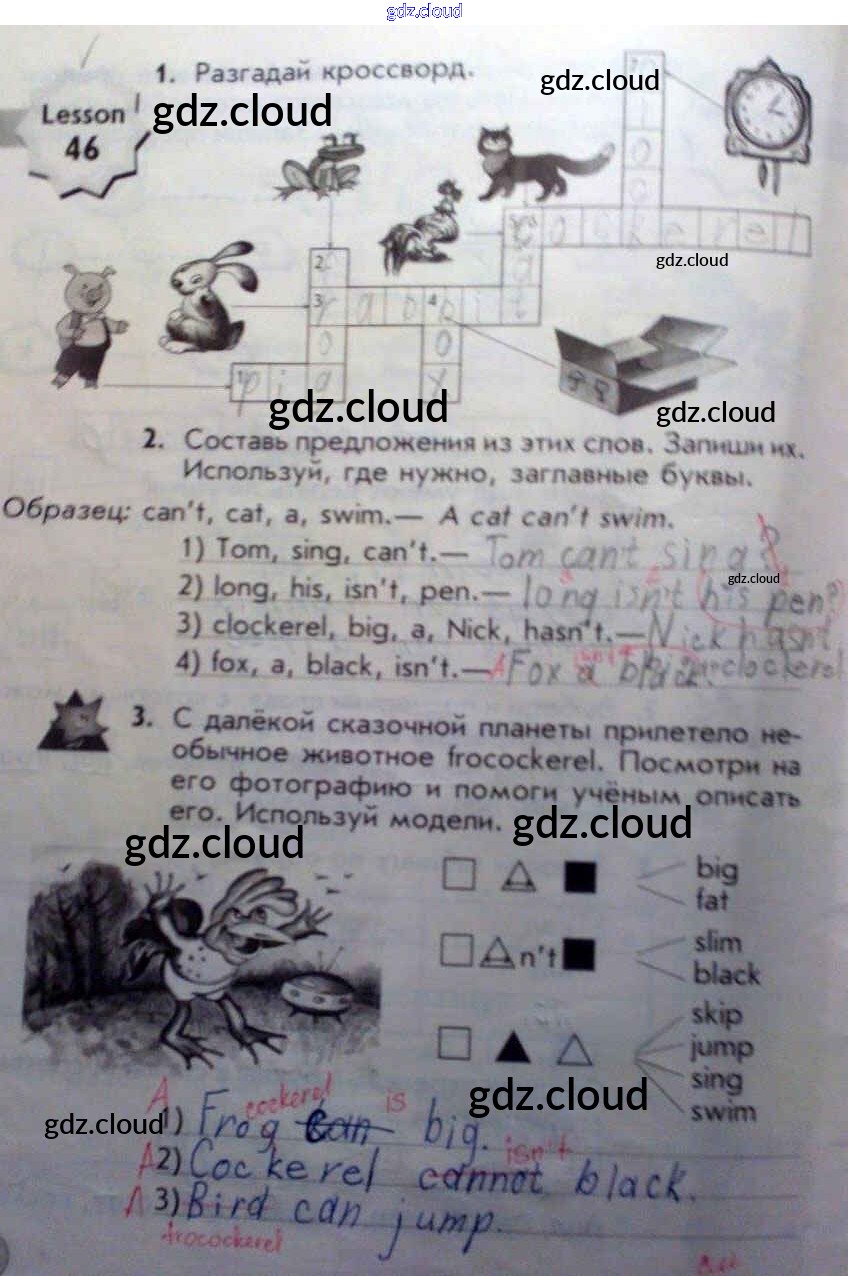 gdz.cloud
1. Разгадай кроссворд.
gdz.cloud
Lesson
46
gdz.cloud
clock
cockerel
gdz.cloud
cat
2.
3 rabbit
4
frog
box
pig
gdz.cloud
gdz.cloud
2. Составь предложения из этих слов. Запиши их.
Используй, где нужно, заглавные буквы.
Образец: can't, cat, a, swim.— A cat can't swim.
1) Tom, sing, can't.— Tom can't sing?
gdz.cloud
2) long, his, isn't, pen.— long isn't his pen?
3) clockerel, big, a, Nick, hasn't.— Nick hasn't
big clockerel
isn't
4) fox, a, black, isn't.— A Fox a black.
3. С далёкой сказочной планеты прилетело не-
обычное животное frocockerel. Посмотри на
его фотографию и помоги учёным описать
его. Используй модели.
gdz.cloud
gdz.cloud
big
fat
n't
slim
black
skip
jump
sing
swim
gdz.cloud
gdz.cloud
A cockerel is
1) Frog can big.
isn't
A 2) Cockerel cannot black.
A 3) Bird can jump.
frocockerel